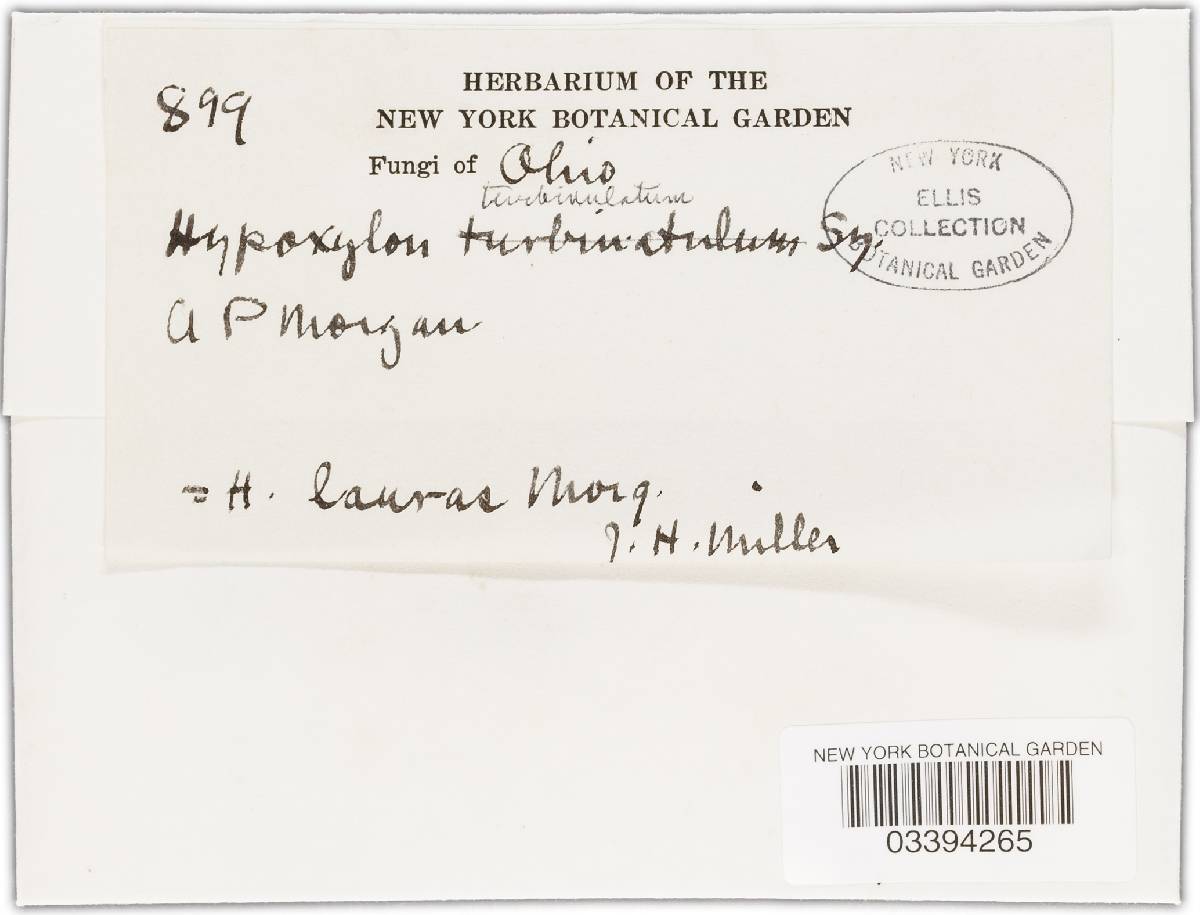 HERBARIUM OF THE
899
NEW YORK BOTANICAL GARDEN
Fungi of Ohio
turbinulatum
Hypoxylon turbinatulum Sz.
A P Morgan
NEW YORK
ELLIS
COLLECTION
BOTANICAL GARDEN
= H. lauras Morg.
J. H. Miller
NEW YORK BOTANICAL GARDEN
03394265